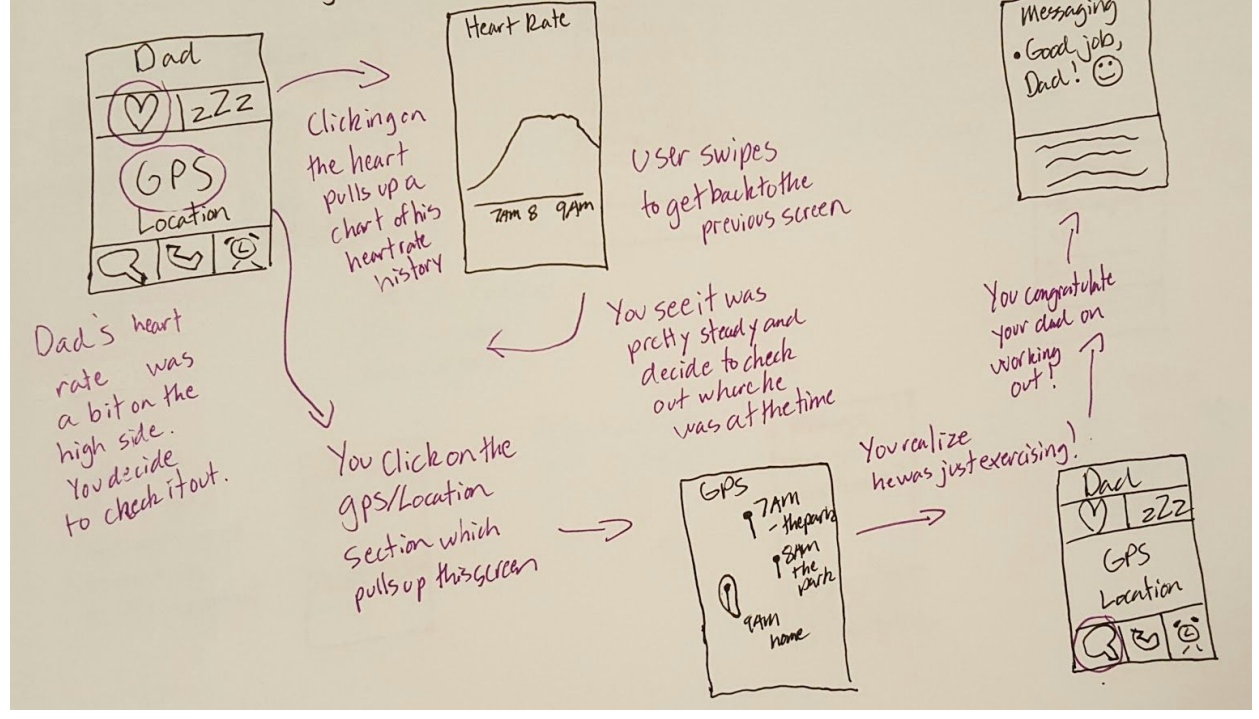 Dad
zZz
GPS
Location
Dad's heart
rate was
a bit on the
high side.
You decide
to check it out.
Clicking on
the heart
pulls up a
chart of his
heart rate
history
Heart Rate
7AM 8 9AM
User swipes
to get back to the
previous screen
You see it was
pretty steady and
decide to check
out where he
was at the time
You Click on the
gps/Location
section which
pulls up this screen
GPS
7AM
- the park
8AM
the
park
9AM
home
You realize
he was just exercising!
Dad
zZz
GPS
Location
You congratulate
your dad on
working
out!
Messaging
• Good job,
Dad! ☺